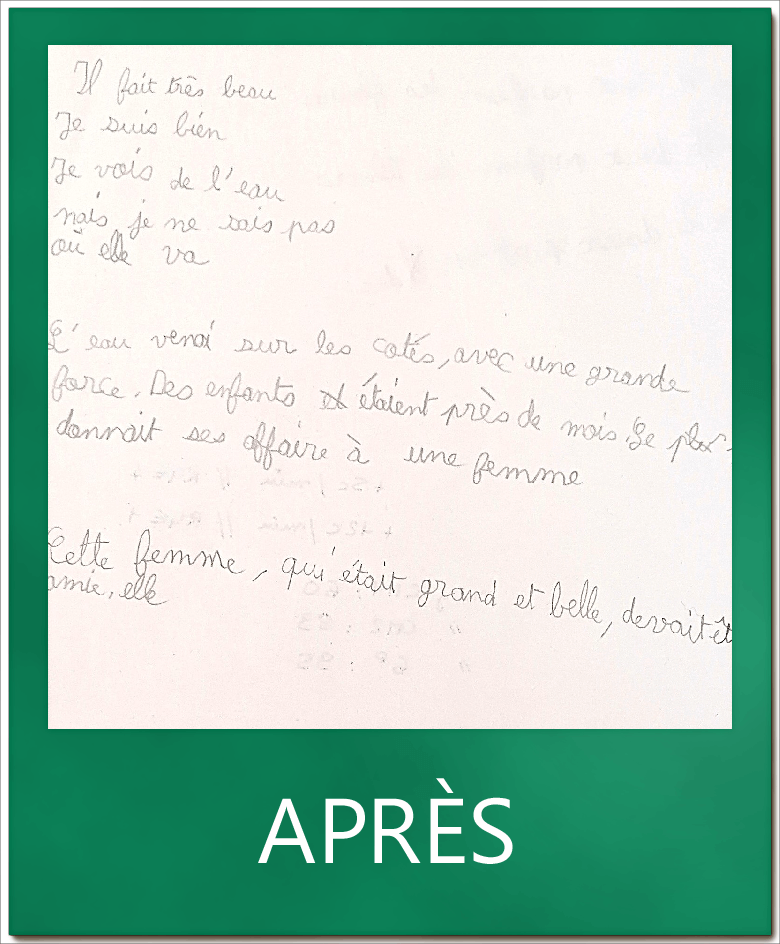 Il fait très beau
Je suis bien
Je vois de l'eau
mais je ne sais pas
où elle va
L'eau venai sur les cotés, avec une grande
force. Des enfants et étaient près de mois. Ge
donnait ses affaire à une femme
Cette femme, qui était grand et belle, devait êt
amie, elle
APRÈS